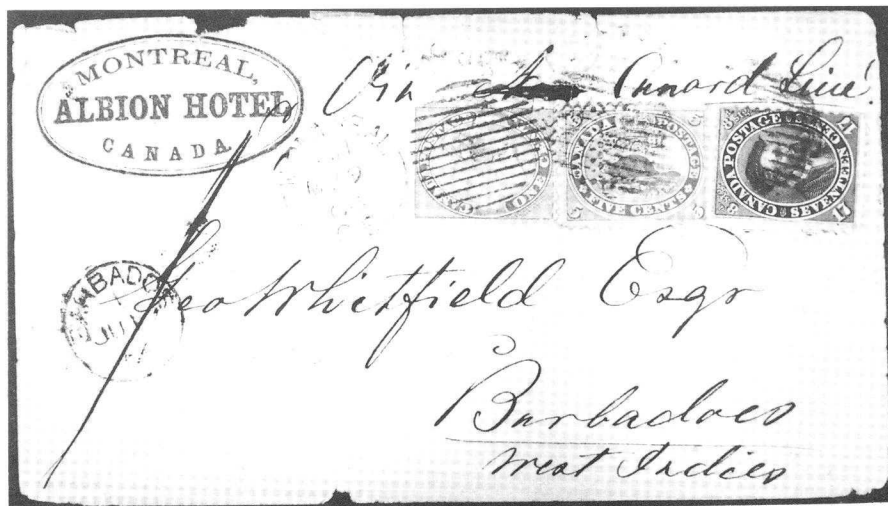 MONTREAL,
ALBION HOTEL
CANADA
Via Cunard Line
CANADA POSTAGE
FIVE CENTS
5 5 5 5
CANADA POSTAGE
SEVENTEEN CENTS
17 17 8
BARBADOS
Geo Whitfield Esqr
Barbadoes
West Indies